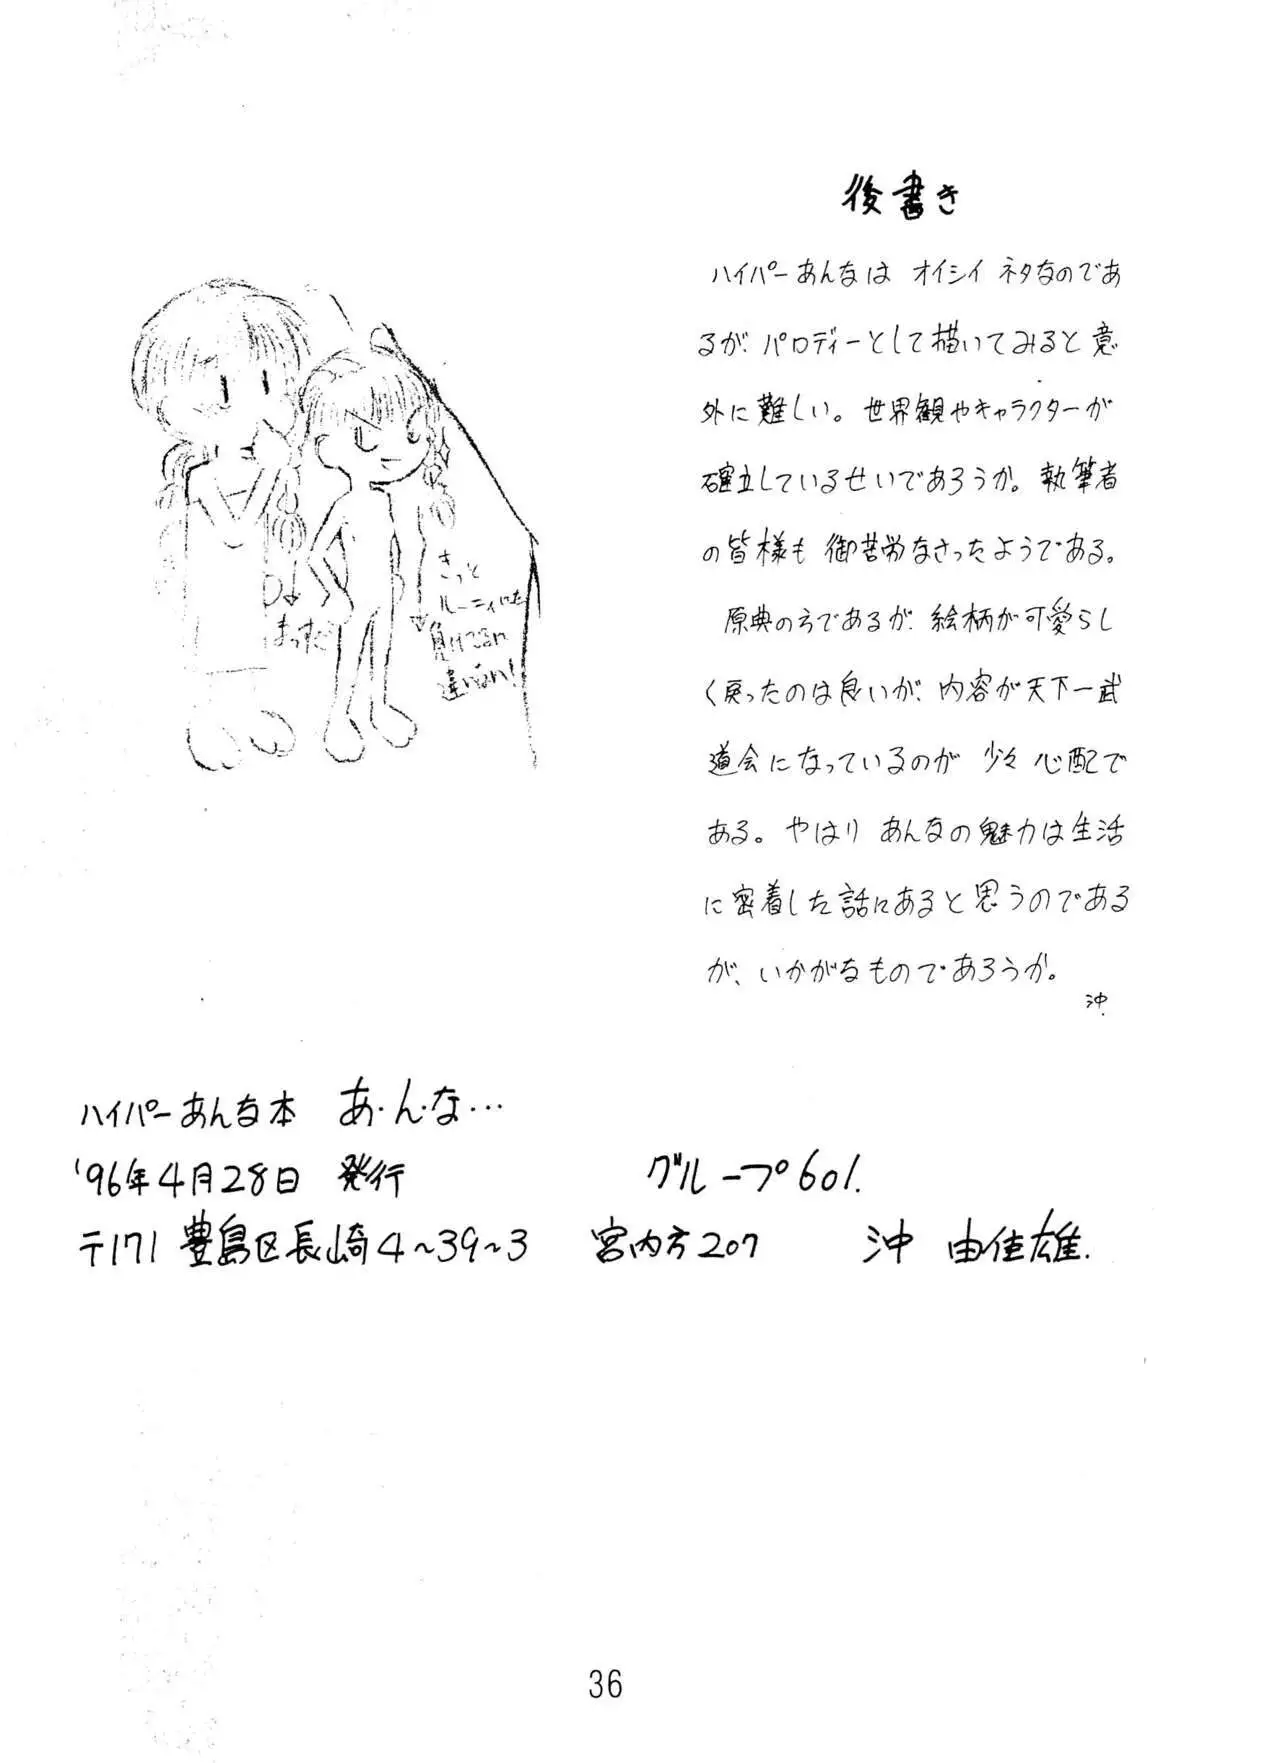 後書き
ハイパーあんなは オイシイ ネタなのであ
るが、パロディーとして描いてみると意
外に難しい。世界観やキャラクターが
確立しているせいであろうか。執筆者
の皆様も 御苦労なさったようである。
原典の方であるが、絵柄が可愛らし
く戻ったのは良いが、内容が天下一武
道会になっているのが 少々 心配で
ある。やはり あんなの魅力は生活
に密着した話にあると思うのである
が、いかがなものであろうか。
沖
まっすぐ
きっと
ルーニィにも
負けてるに
違いない!
ハイパーあんな本 あ・ん・な…
'96年4月28日 発行 グループ601.
〒171 豊島区長崎4~39~3 宮内方207 沖 由佳雄.
36